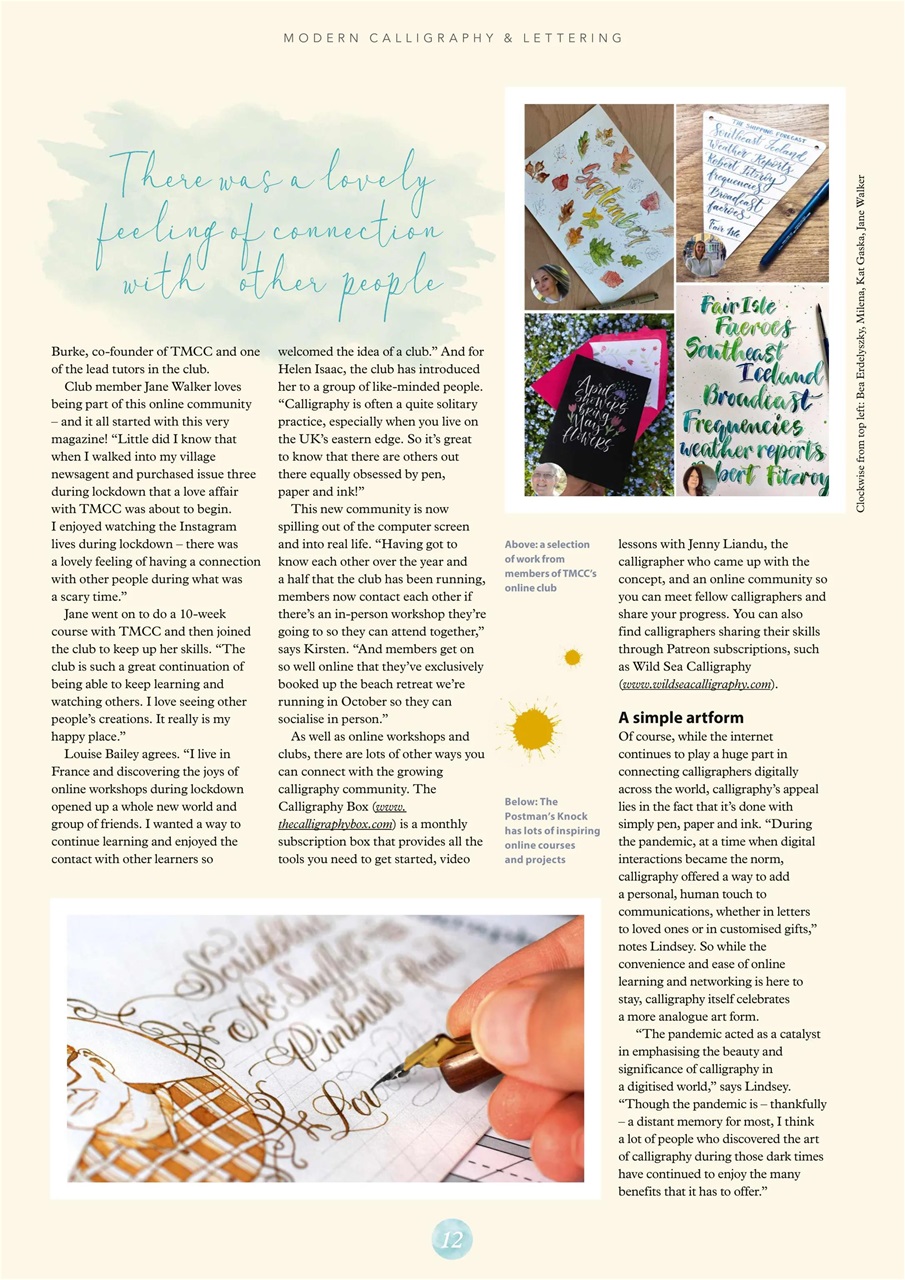 MODERN CALLIGRAPHY & LETTERING
There was a lovely
feeling of connection
with other people
Burke, co-founder of TMCC and one
of the lead tutors in the club.
Club member Jane Walker loves
being part of this online community
– and it all started with this very
magazine! “Little did I know that
when I walked into my village
newsagent and purchased issue three
during lockdown that a love affair
with TMCC was about to begin.
I enjoyed watching the Instagram
lives during lockdown – there was
a lovely feeling of having a connection
with other people during what was
a scary time.”
Jane went on to do a 10-week
course with TMCC and then joined
the club to keep up her skills. “The
club is such a great continuation of
being able to keep learning and
watching others. I love seeing other
people’s creations. It really is my
happy place.”
Louise Bailey agrees. “I live in
France and discovering the joys of
online workshops during lockdown
opened up a whole new world and
group of friends. I wanted a way to
continue learning and enjoyed the
contact with other learners so
welcomed the idea of a club.” And for
Helen Isaac, the club has introduced
her to a group of like-minded people.
“Calligraphy is often a quite solitary
practice, especially when you live on
the UK’s eastern edge. So it’s great
to know that there are others out
there equally obsessed by pen,
paper and ink!”
This new community is now
spilling out of the computer screen
and into real life. “Having got to
know each other over the year and
a half that the club has been running,
members now contact each other if
there’s an in-person workshop they’re
going to so they can attend together,”
says Kirsten. “And members get on
so well online that they’ve exclusively
booked up the beach retreat we’re
running in October so they can
socialise in person.”
As well as online workshops and
clubs, there are lots of other ways you
can connect with the growing
calligraphy community. The
Calligraphy Box (www.
thecalligraphybox.com) is a monthly
subscription box that provides all the
tools you need to get started, video
September
THE SHIPPING FORECAST
Southeast Iceland
Weather Reports
Robert Fitzroy
frequencies
Broadcast
faeroes
Fair Isle
April
showers
bring
may
flowers
Fair Isle
Faeroes
Southeast
Iceland
Broadcast
Frequencies
weather reports
obert Fitzroy
Clockwise from top left: Bea Erdelyszky, Milena, Kat Gaska, Jane Walker
Above: a selection
of work from
members of TMCC’s
online club
Below: The
Postman’s Knock
has lots of inspiring
online courses
and projects
lessons with Jenny Liandu, the
calligrapher who came up with the
concept, and an online community so
you can meet fellow calligraphers and
share your progress. You can also
find calligraphers sharing their skills
through Patreon subscriptions, such
as Wild Sea Calligraphy
(www.wildseacalligraphy.com).
A simple artform
Of course, while the internet
continues to play a huge part in
connecting calligraphers digitally
across the world, calligraphy’s appeal
lies in the fact that it’s done with
simply pen, paper and ink. “During
the pandemic, at a time when digital
interactions became the norm,
calligraphy offered a way to add
a personal, human touch to
communications, whether in letters
to loved ones or in customised gifts,”
notes Lindsey. So while the
convenience and ease of online
learning and networking is here to
stay, calligraphy itself celebrates
a more analogue art form.
“The pandemic acted as a catalyst
in emphasising the beauty and
significance of calligraphy in
a digitised world,” says Lindsey.
“Though the pandemic is – thankfully
– a distant memory for most, I think
a lot of people who discovered the art
of calligraphy during those dark times
have continued to enjoy the many
benefits that it has to offer.”
Pinbush
Lov
12